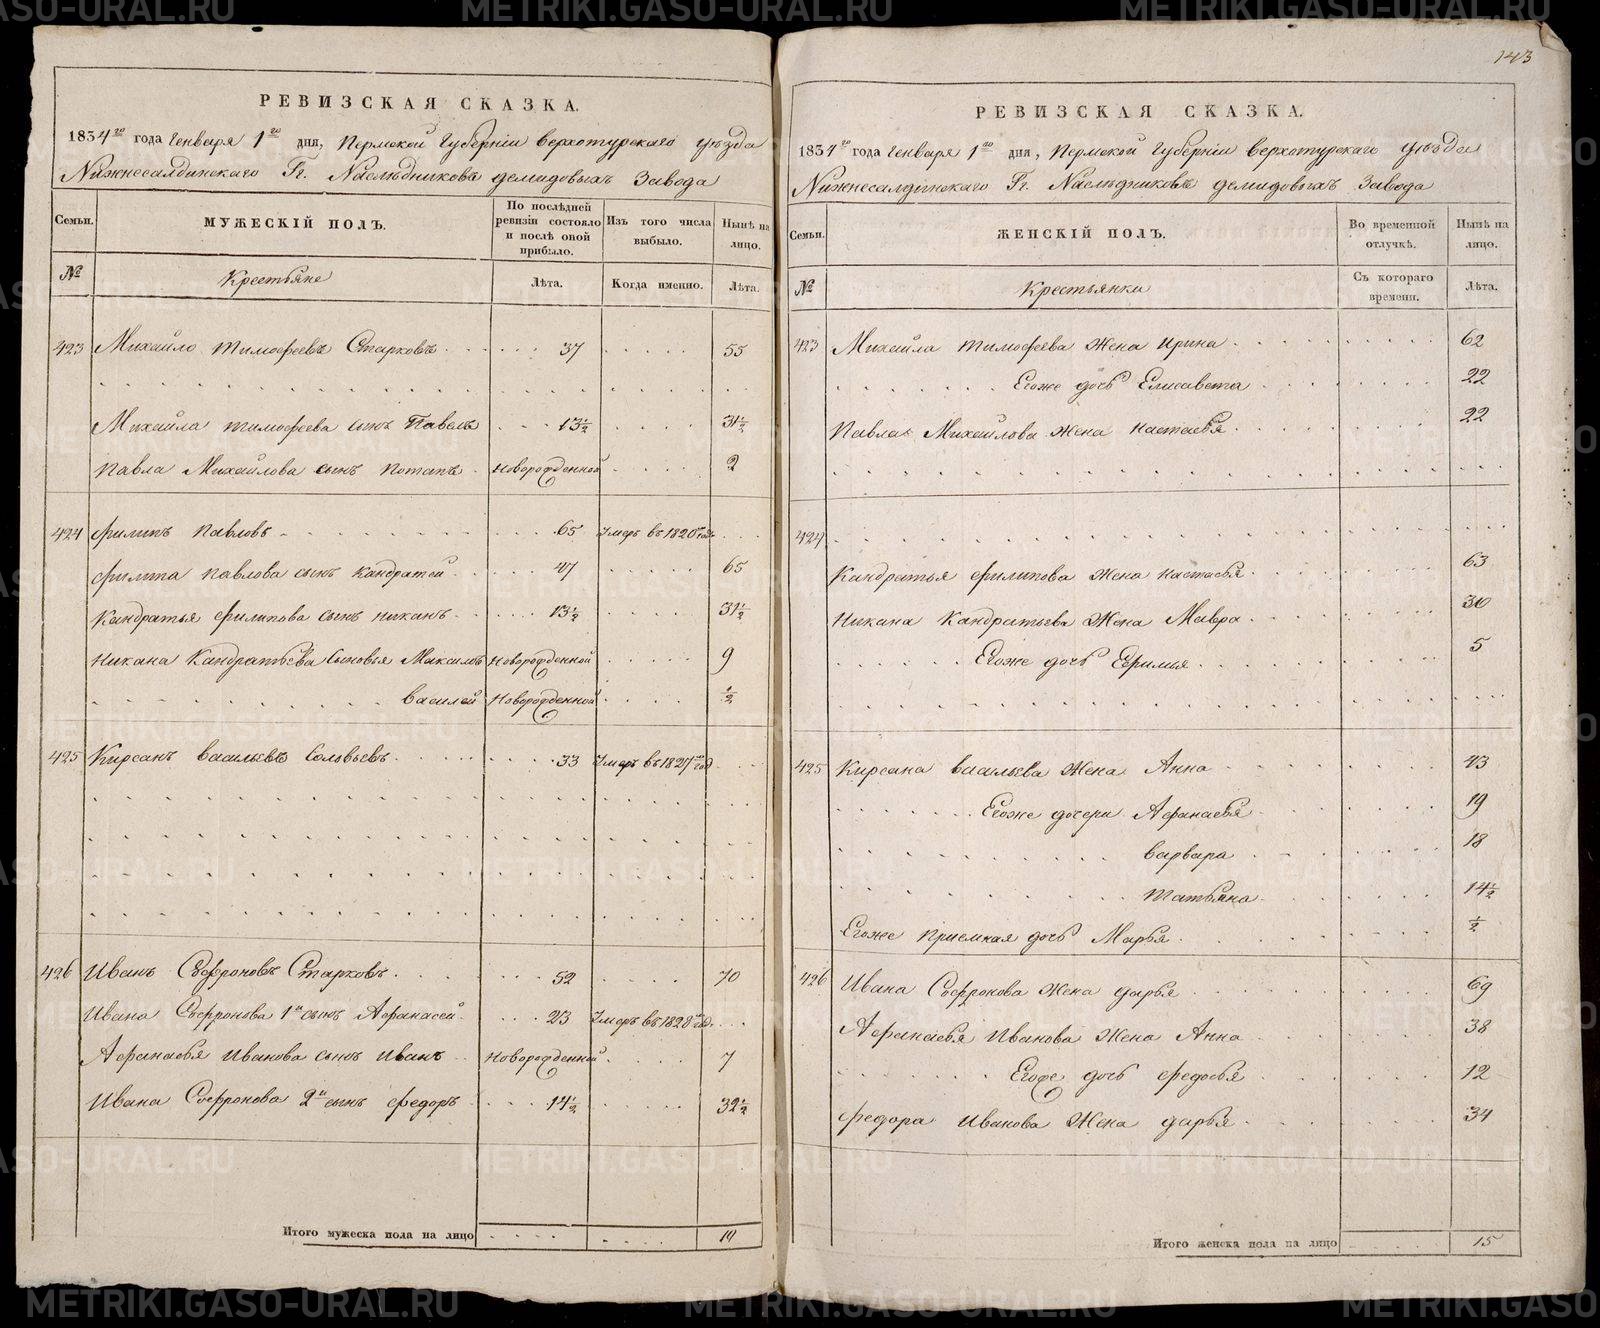 143
РЕВИЗСКАЯ СКАЗКА.
1834го года Генваря 1го дня, Пермской Губернiи Верхотурскаго уѣзда
Нижнесалдинскаго Гг. Наслѣдниковъ Демидовыхъ Завода
Семьи. МУЖЕСКIЙ ПОЛЪ. По послѣдней ревизiи состояло и послѣ оной прибыло. Изъ того числа выбыло. Нынѣ на лицо.
№ Крестьяне Лѣта. Когда именно. Лѣта.
423 Михайло Тимофеевъ Старковъ 37 55
Михайла Тимофеева сынъ Павелъ 13½ 31½
Павла Михайлова сынъ Потапъ Новорожденной 2
424 Филипъ Павловъ 65 Умеръ въ 1820мъ году
Филипа Павлова сынъ Кандратей 47 65
Кандратья Филипова сынъ Никанъ 13½ 31½
Никана Кандратьева сыновья Максимъ Новорожденной 9
Василей Новорожденной ½
425 Кирсанъ Васильевъ Соловьевъ 33 Умеръ въ 1827мъ год
426 Иванъ Софроновъ Старковъ 52 70
Ивана Софронова 1й сынъ Афанасей 23 Умеръ въ 1828мъ год
Афанасья Иванова сынъ Иванъ Новорожденной 7
Ивана Софронова 2й сынъ Федоръ 14½ 32½
Итого мужеска пола на лицо 10
РЕВИЗСКАЯ СКАЗКА.
1834го года Генваря 1го дня, Пермской Губернiи Верхотурскаго уѣзда
Нижнесалдинскаго Гг. Наслѣдниковъ Демидовыхъ Завода
Семьи. ЖЕНСКIЙ ПОЛЪ. Во временной отлучкѣ. Нынѣ на лицо.
№ Крестьянки Съ котораго времени. Лѣта.
423 Михайла Тимофеева жена Ирина 62
Егоже дочь Елисавета 22
Павла Михайлова жена Настасья 22
424
Кандратья Филипова жена Настасья 63
Никана Кандратьева жена Мавра 30
Егоже дочь Ефимья 5
425 Кирсана Васильева жена Анна 43
Егоже дочери Афанасья 19
Варвара 18
Татьяна 14½
Егоже приемная дочь Марья ½
426 Ивана Софронова жена Дарья 69
Афанасья Иванова жена Анна 38
Егоже дочь Федосья 12
Федора Иванова жена Дарья 34
Итого женска пола на лицо 15
METRIKI.GASO-URAL.RU